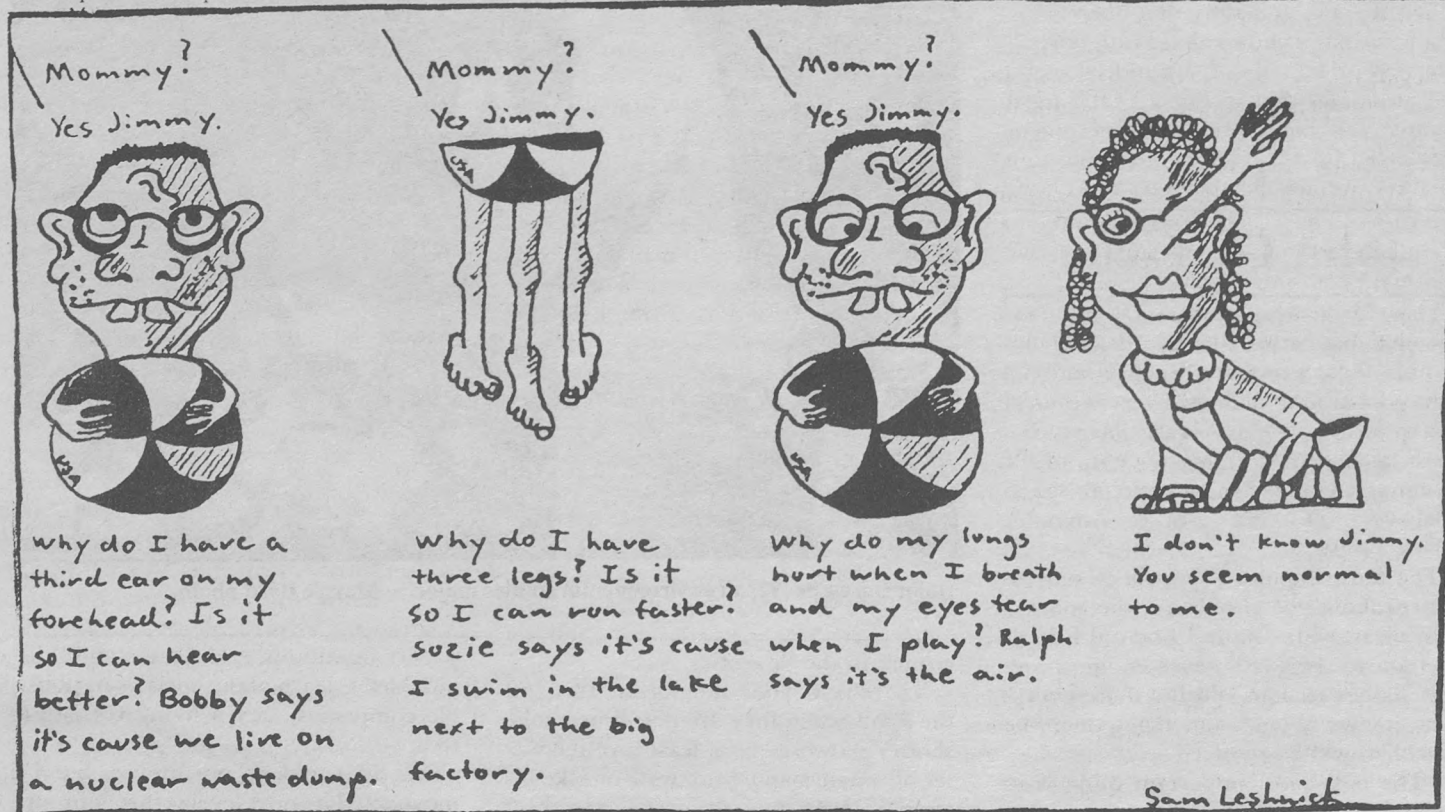 Mommy?
Yes Jimmy.
USA
why do I have a
third ear on my
forehead? Is it
so I can hear
better? Bobby says
it's cause we live on
a nuclear waste dump.
Mommy?
Yes Jimmy.
USA
why do I have
three legs? Is it
so I can run faster?
suzie says it's cause
I swim in the lake
next to the big
factory.
Mommy?
Yes Jimmy.
USA
why do my lungs
hurt when I breath
and my eyes tear
when I play? Ralph
says it's the air.
I don't know Jimmy.
You seem normal
to me.
Sam Leshnick